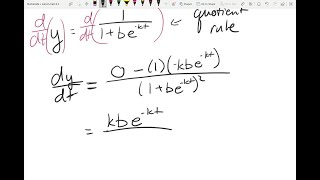 d/dt (y) = d/dt ( 1 / (1 + be^-kt) ) ← quotient rule
dy/dt = (0 - (1)(-kbe^-kt)) / (1 + be^-kt)^2
= kbe^-kt